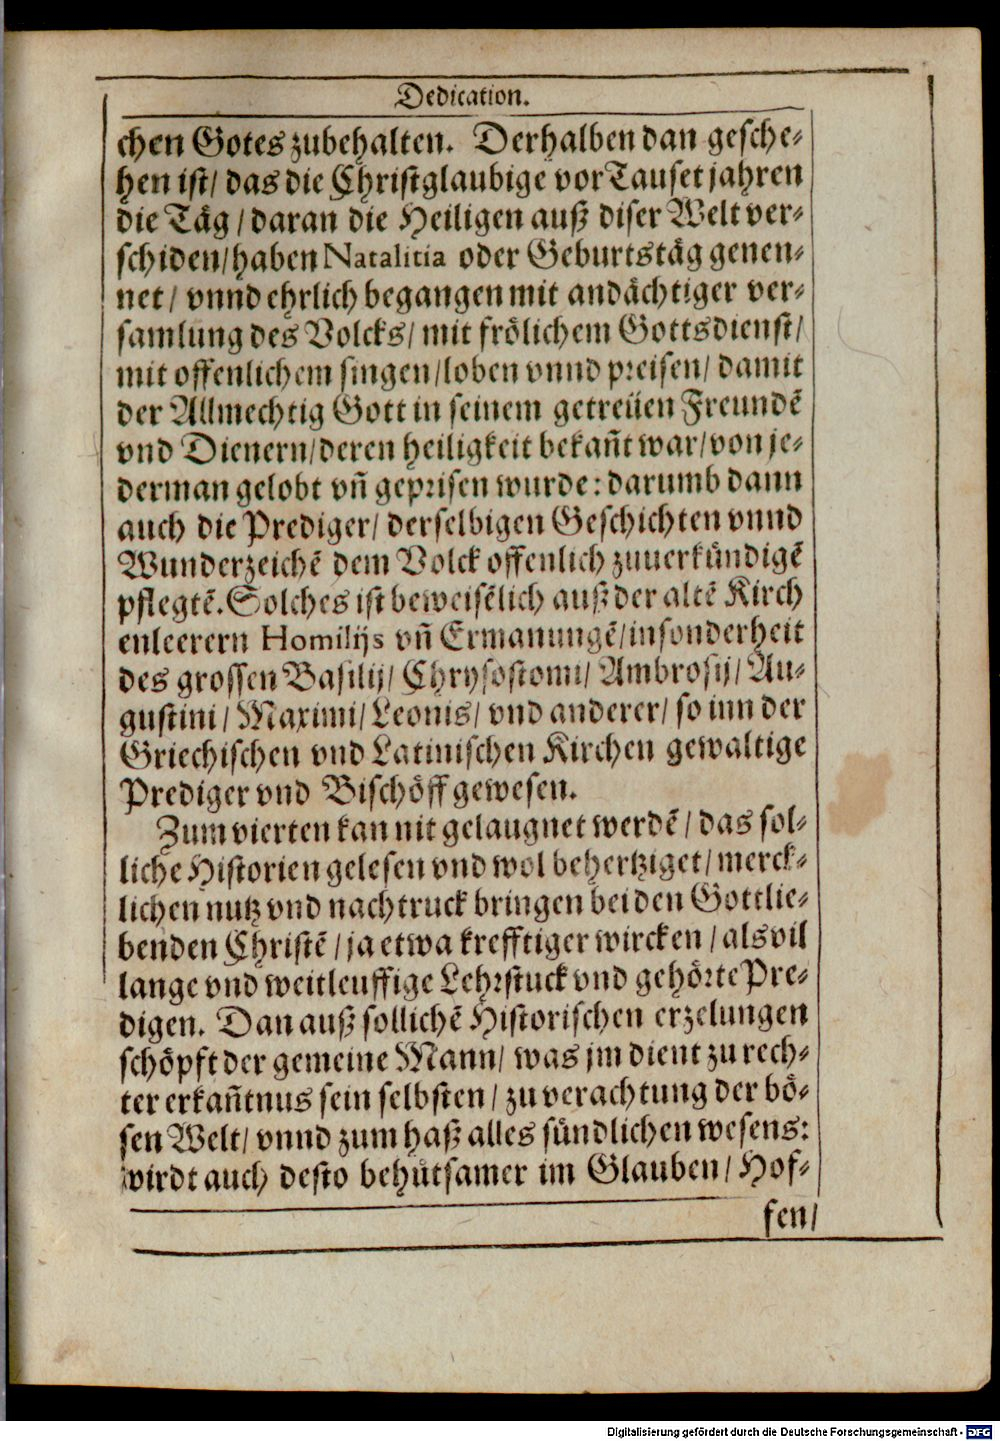 Dedication.
chen Gotes zubehalten. Derhalben dan gesche-
hen ist/ das die Christglaubige vor Tauset jahren
die Täg/ daran die Heiligen auß diser Welt ver-
schiden/ haben Natalitia oder Geburtstäg genen-
net/ vnnd ehrlich begangen mit andächtiger ver-
samlung des Volcks/ mit frölichem Gottsdienst/
mit offenlichem singen/ loben vnnd preisen/ damit
der Allmechtig Gott in seinem getreüen Freundē
vnd Dienern/ deren heiligkeit bekañt war/ von je-
derman gelobt vñ geprisen wurde: darumb dann
auch die Prediger/ derselbigen Geschichten vnnd
Wunderzeichē dem Volck offenlich zuuerkündigē
pflegtē. Solches ist beweisēlich auß der altē Kirch
enleerern Homilijs vñ Ermanungē/ insonderheit
des grossen Basilij/ Chrysostomi/ Ambrosij/ Au-
gustini/ Maximi/ Leonis/ vnd anderer/ so inn der
Griechischen vnd Latinischen Kirchen gewaltige
Prediger vnd Bischöff gewesen.
Zum vierten kan nit gelaugnet werdē/ das sol-
liche Historien gelesen vnd wol behertziget/ merck-
lichen nutz vnd nachtruck bringen bei den Gottlie-
benden Christē/ ja etwa krefftiger wircken/ als vil
lange vnd weitleuffige Lehrstuck vnd gehörte Pre-
digen. Dan auß sollichē Historischen erzelungen
schöpft der gemeine Mann/ was jm dient zu rech-
ter erkañtnus sein selbsten/ zu verachtung der bö-
sen Welt/ vnnd zum haß alles sündlichen wesens:
wirdt auch desto behütsamer im Glauben/ Hof-
fen/
Digitalisierung gefördert durch die Deutsche Forschungsgemeinschaft - DFG